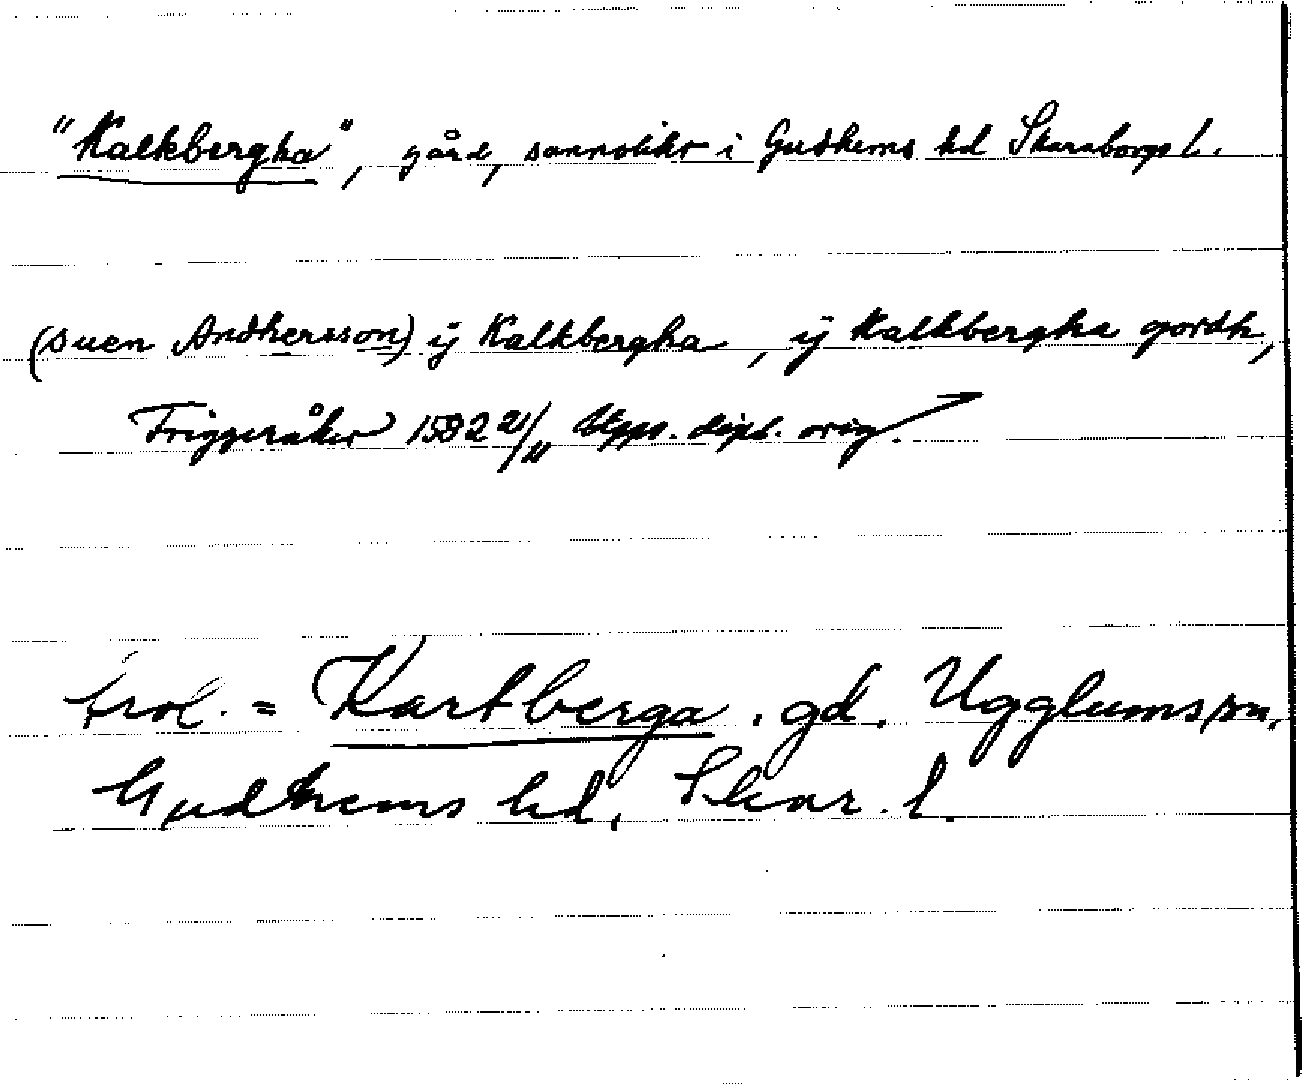 "Kalkbergha", gård, sannolikt i Gudhems hd Skaraborgs l.
(Suen Andhersson) ij Kalkbergha, ij Kalkbergha gordh,
Friggeråker 1582 21/11 Uppr. dipl. orig.
trol. = Kartberga. gd. Ugglums sn.
Gudhems hd, Skar. l.